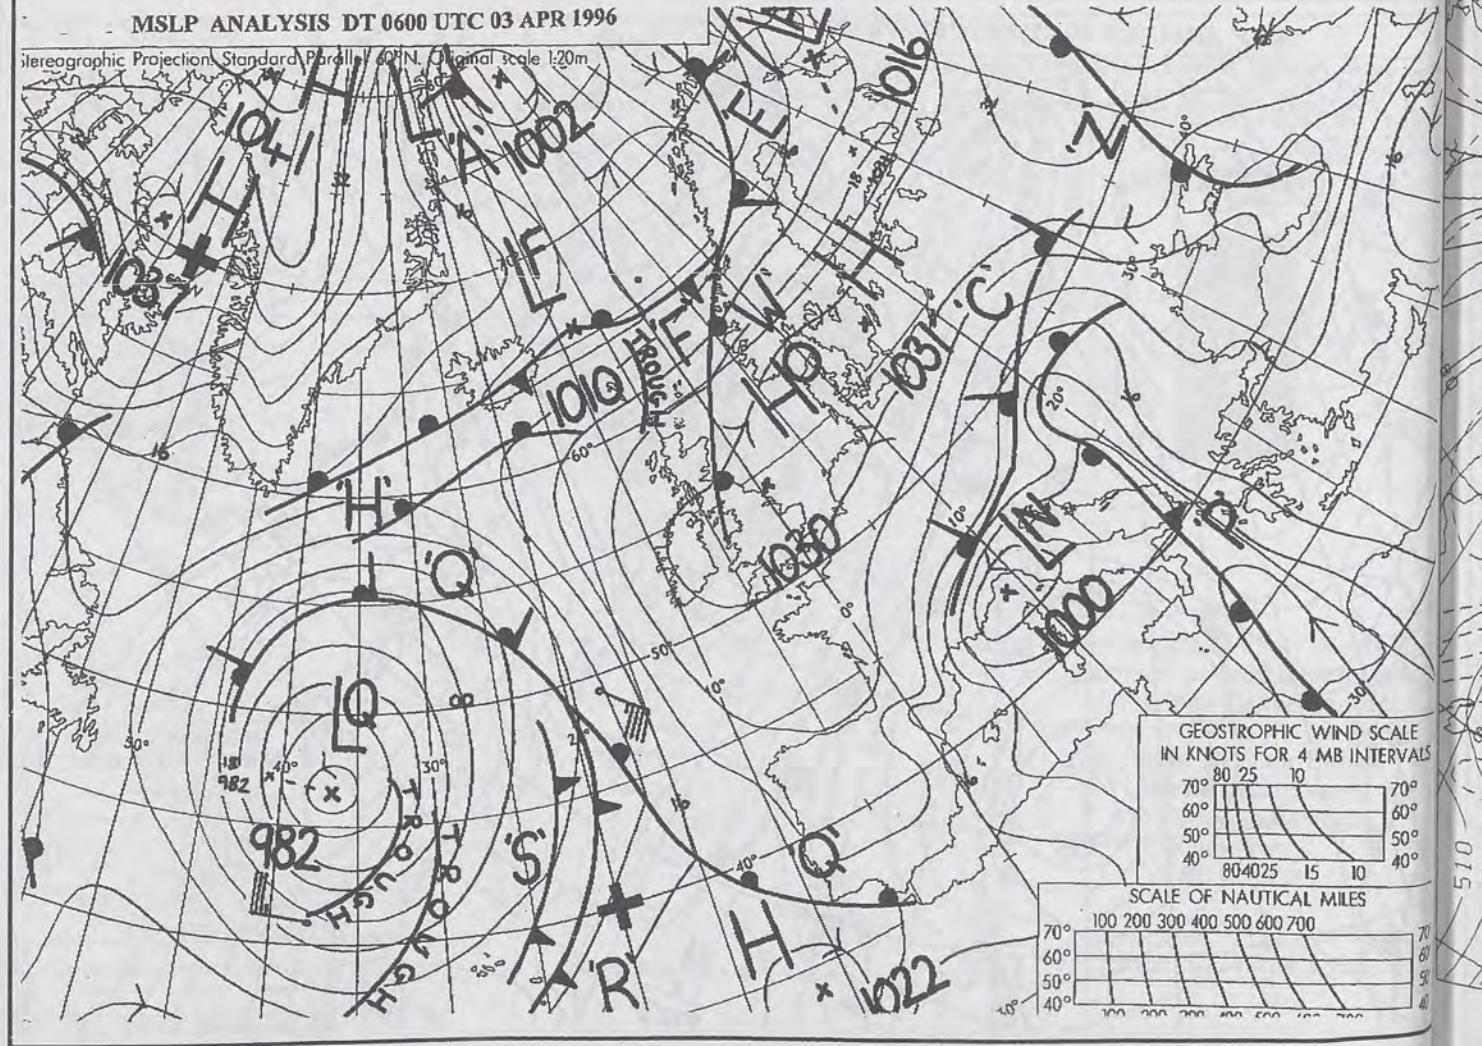 MSLP ANALYSIS DT 0600 UTC 03 APR 1996
Stereagraphic Projection. Standard Parallel 60°N. Original scale 1:20m
H
H
1041
L
'A'
1002
L
E
1016
'Z'
H
1037
LF
H
'W'
'F'
TROUGH
1010
HP
1031
'C'
20°
30°
16
60°
'H'
10°
LN
'P'
1000
1030
'Q'
0°
50°
10°
30
LQ
50°
40°
30°
982
982
TROUGH
TROUGH
'S'
'R'
40°
Q'
H
1022
GEOSTROPHIC WIND SCALE
IN KNOTS FOR 4 MB INTERVALS
80 25 10
70° 70°
60° 60°
50° 50°
40° 40°
80 40 25 15 10
SCALE OF NAUTICAL MILES
100 200 300 400 500 600 700
70° 70
60° 60
50° 50
40° 40
510